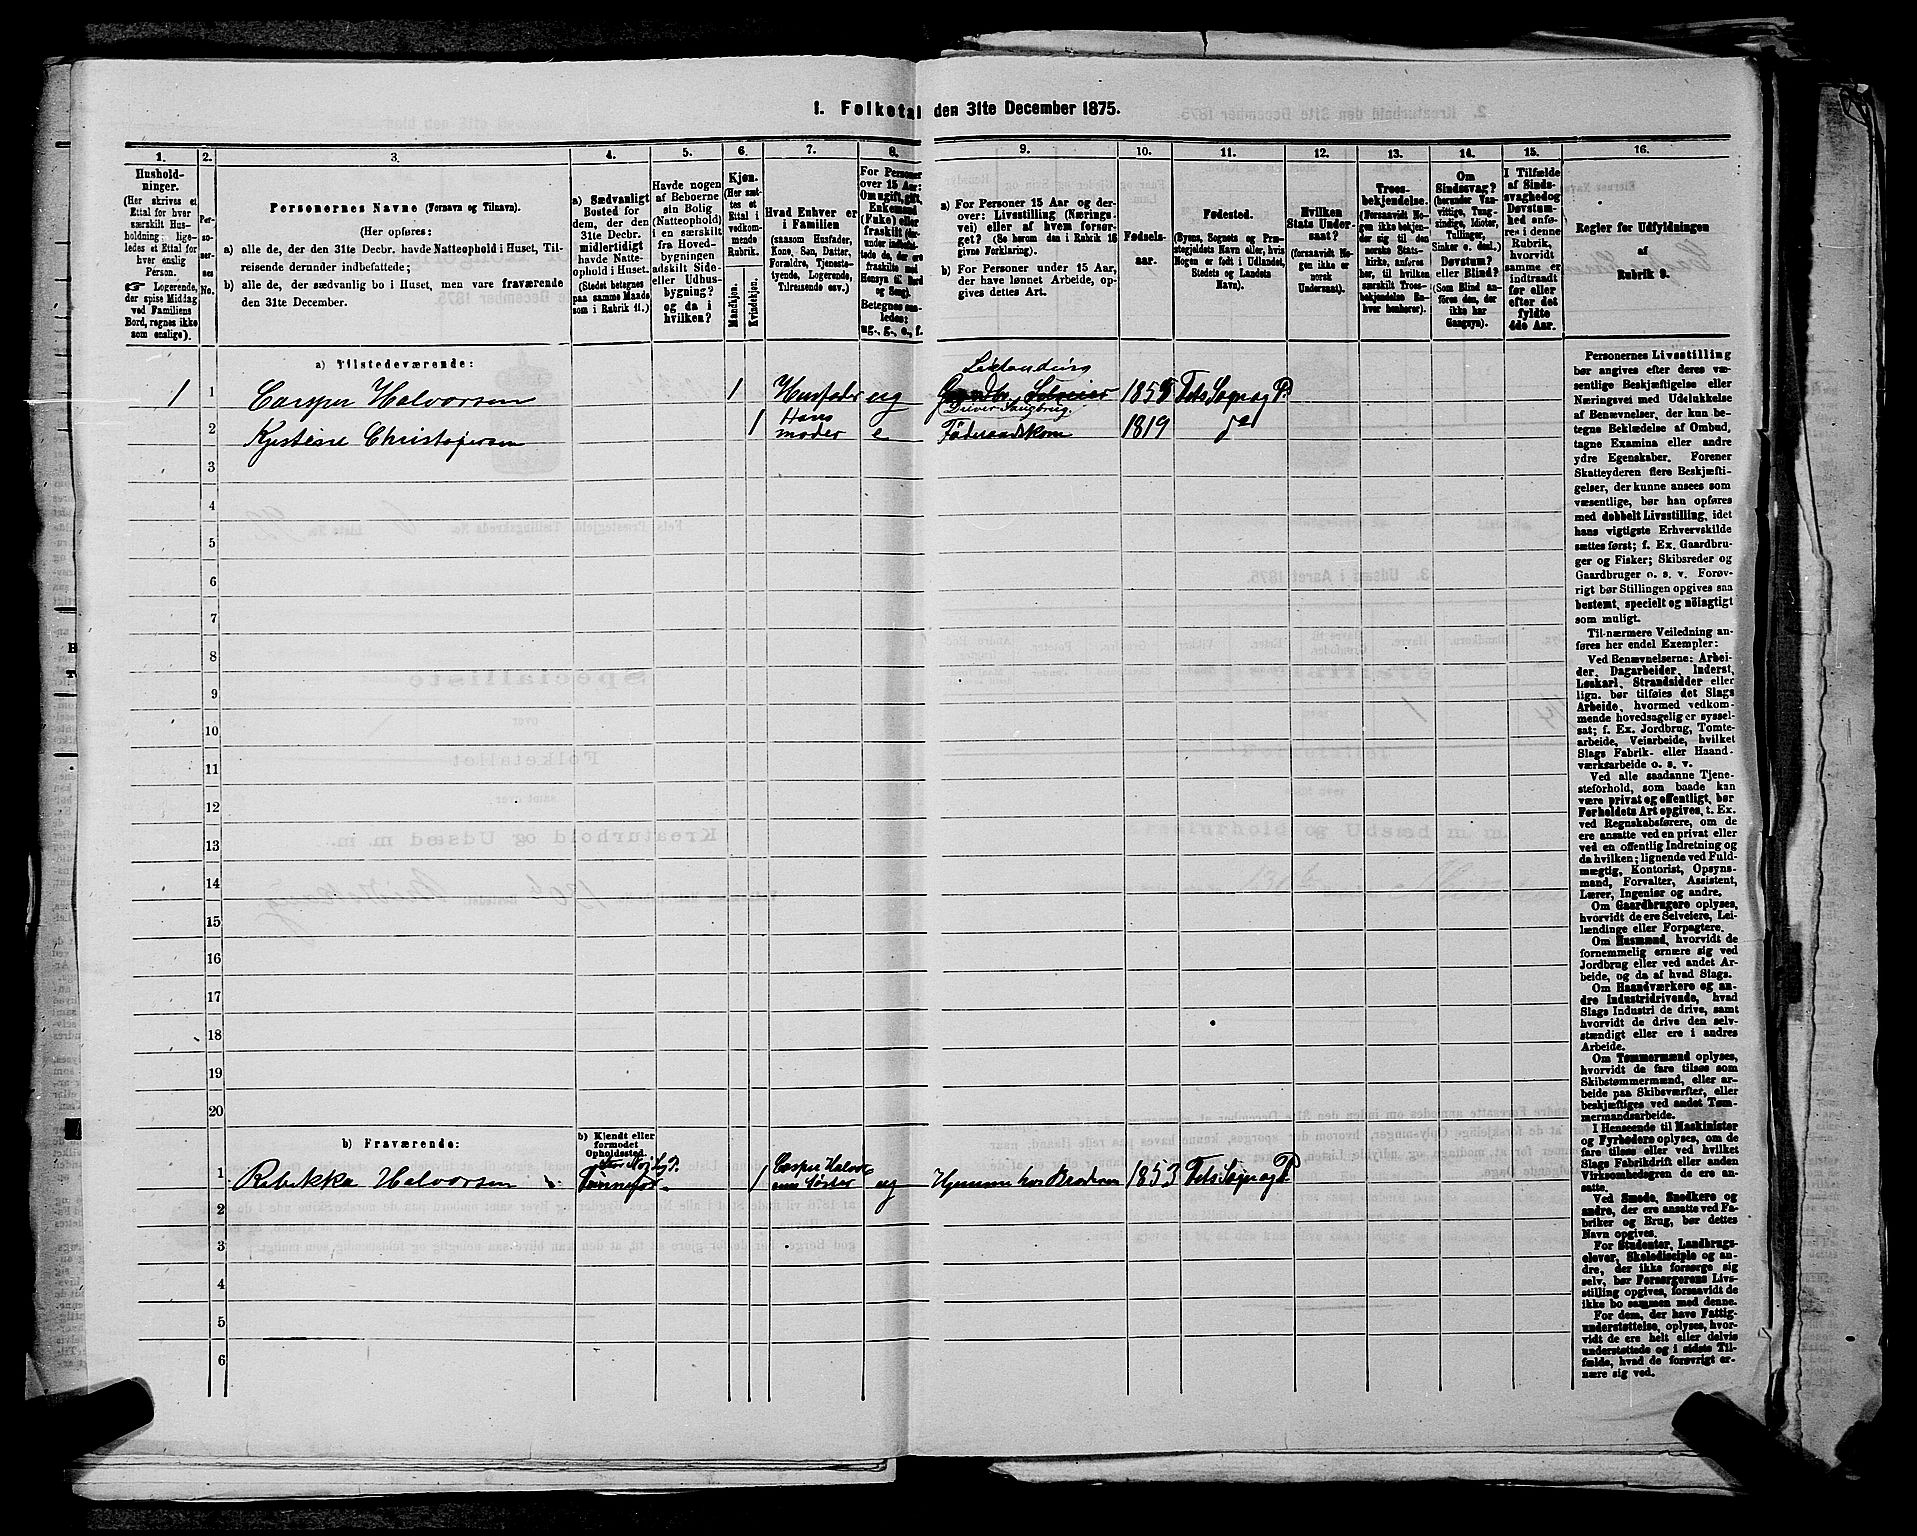 1. Folketal den 31te December 1875.
1. 2. 3. 4. 5. 6. 7. 8. 9. 10. 11. 12. 13. 14. 15. 16.
Hushold-
ninger.
(Her skrives et
Ettal for hver
særskilt Hus-
holdning; lige-
ledes et Ettal for
hver enslig
Person.
☞ Logerende,
der spise Middag
ved Familiens
Bord, regnes ikke
som enslige).
Per-
so-
ner-
nes
No.
Personernes Navne (Fornavn og Tilnavn).
(Her opføres:
a) alle de, der den 31te Decbr. havde Natteophold i Huset, Til-
reisende derunder indbefattede;
b) alle de, der sædvanlig bo i Huset, men vare fraværende
den 31te December.
a) Sædvanligt
Bosted for
dem, der den
31te Decbr.
midlertidigt
havde Natte-
ophold i Huset.
(Stedet betegnes
paa samme Maade
som i Rubrik 11.)
Havde nogen
af Beboerne
sin Bolig
(Natteophold)
i en særskilt
fra Hoved-
bygningen
adskilt Side-
eller Udhus-
bygning?
og da i
hvilken?
Kjøn.
(Her sæt-
tes et
Ettal i
vedkom-
mende
Rubrik.
Mandkjøn.
Kvindekjøn.
Hvad Enhver er
i Familien
(saasom Husfader,
Kone, Søn, Datter,
Forældre, Tjeneste-
tyende, Logerende,
Tilreisende osv.)
For Personer
over 15 Aar:
Om ugift, gift,
Enkemand
(Enke) eller
fraskilt
Betegnes saa-
ledes:
ug., g., e., f.
a) For Personer 15 Aar og der-
over: Livsstilling (Nærings-
vei) eller af hvem forsør-
get? (Se herom den i Rubrik 16
givne Forklaring).
b) For Personer under 15 Aar,
der have lønnet Arbeide, op-
gives dettes Art.
Fødsels-
aar.
Fødested.
(Byens, Sognets og Præ-
stegjeldets Navn eller, hvis
Nogen er født i Udlandet,
Stedets og Landets
Navn).
Hvilken
Stats Under-
saat?
(forsaavidt No-
gen ikke er
norsk
Undersaat).
Troes-
bekjendelse.
(Forsaavidt No-
gen ikke bekjen-
der sig til den
norske Stats-
kirke, anføres
her, til hvilken
særskilt Troes-
bekjendelse En-
hver henhører).
Om
Sindssvag?
(herunder Van-
vittige, Tung-
sindige, Idioter,
Tullinger,
Sinker o. desl.)
Døvstum?
eller Blind?
(Som Blind an-
føres den, der
ikke har
Gangsyn).
I Tilfælde
af Sinds-
svaghed og
Døvstum-
hed anfø-
res i denne
Rubrik,
hvorvidt
samme er
indtraadt
før eller
efter det
fyldte
4de Aar.
Regler for Udfyldningen
af
Rubrik 9.
a) Tilstedeværende:
Leilænding
1 1 Casper Halvorsen 1 Husfader ug 1855 Fets Sogn og P.
Driver Jaugbrug.
2 Kjerstine Christophersen 1 Hans moder e Föderaadskone 1819 do
3
4
5
6
7
8
9
10
11
12
13
14
15
16
17
18
19
20
b) Fraværende:
b) Kjendt eller
formodet
Opholdssted.
1 Rebekka Halvorsen 1 Casper Halvor- sens Søster ug Hjemme hos Broderen 1853 Fets Sogn og P.
2
3
4
5
6
Personernes Livsstilling
bør angives efter deres væ-
sentlige Beskjæftigelse eller
Næringsvei med Udelukkelse
af Benævnelser, der kun be-
tegne Beklædelse af Ombud,
tagne Examina eller andre
ydre Egenskaber. Forener
Skatteyderen flere Beskjæfti-
gelser, der kunne ansees som
væsentlige, bør han opføres
med dobbelt Livsstilling, idet
hans vigtigste Erhvervskilde
sættes først; f. Ex. Gaardbru-
ger og Fisker; Skibsreder og
Gaardbruger o. s. v. Forøv-
rigt bør Stillingen opgives saa
bestemt, specielt og nöiagtigt
som muligt.
Til nærmere Veiledning an-
føres her endel Exempler:
Ved Benævnelserne: Arbei-
der, Dagarbeider, Inderst,
Løskarl, Strandsidder eller
lign. bør tilføies det Slags
Arbeide, hvormed vedkom-
mende hovedsagelig er syssel-
sat; f. Ex. Jordbrug, Tomte-
arbeide, Veiarbeide, hvilket
Slags Fabrik- eller Haand-
værksarbeide o. s. v.
Ved alle saadanne Tjene-
steforhold, som baade kan
være privat og offentligt, bør
Forholdets Art opgives, t. Ex.
ved Regnskabsførere, om de
ere ansatte ved en privat eller
ved en offentlig Indretning og
da hvilken; lignende ved Fuld-
mægtig, Kontorist, Opsyns-
mand, Forvalter, Assistent,
Lærer, Ingeniør og andre.
Om Gaardbrugere oplyses,
hvorvidt de ere Selveiere, Lei-
lændinge eller Forpagtere.
Om Husmænd, hvorvidt de
fornemmelig ernære sig ved
Jordbrug eller ved andet Ar-
beide, og da af hvad Slags.
Om Haandværkere og an-
dre Industridrivende, hvad
Slags Industri de drive, samt
hvorvidt de drive den selv-
stændigt eller ere i andres
Arbeide.
Om Tømmermænd oplyses,
hvorvidt de fare tilsøs som
Skibstømmermænd, eller ar-
beide paa Skibsværfter, eller
beskjæftiges ved andet Tøm-
mermandsarbeide.
I Henseende til Maskinister
og Fyrbødere oplyses, om de
fare tilsøs eller ved hvilket
Slags Fabrikdrift eller anden
Virksomhed de ere an-
satte.
Ved Smede, Snedkere og
andre, der ere ansatte ved Fa-
briker og Brug, bør dettes
Navn opgives.
For Studenter, Landbrugs-
elever, Skoledisciple og an-
dre, der ikke forsørge sig
selv, bør Forsørgerens Livs-
stilling opgives, forsaavidt de
ikke bo sammen med denne.
For dem, der have Fattig-
understøttelse, oplyses, hvor-
vidt de ere helt eller delvis
understøttede og i sidste Til-
fælde, hvad de forøvrigt er-
nære sig ved.